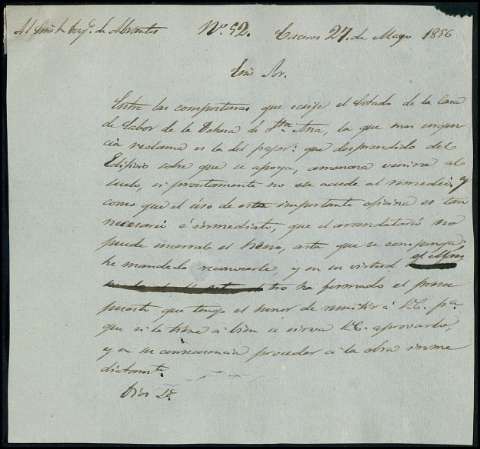 Al Exmo. Sr. Duq.e de Abrantes Nº 52. Caceres 27. de Mayo 1856
Exmo Sor.
Entre las composturas que exige el Estado de la Casa
de Labor de la Dehesa de Sta. Ana, la que mas urgen
cia reclama es la del pajar: que desprendido del
Edificio sobre que se apoya, amenaza venirse al
suelo, si prontamente no se acude al remedio; y
como que el uso de esta importante oficina es tan
necesario é inmediato, que el arrendatario no
puede encerrar el heno, antes que se componga,
he mandado reconocerle, y en su virtud
tro ha formado el presu
puesto que tengo el honor de remitir á V.E. pa.
que si lo tiene á bien se sirva V.E. aprovarlo,
y en su consecuencia proceder á la obra inme
diatamte.
Dios Ge.